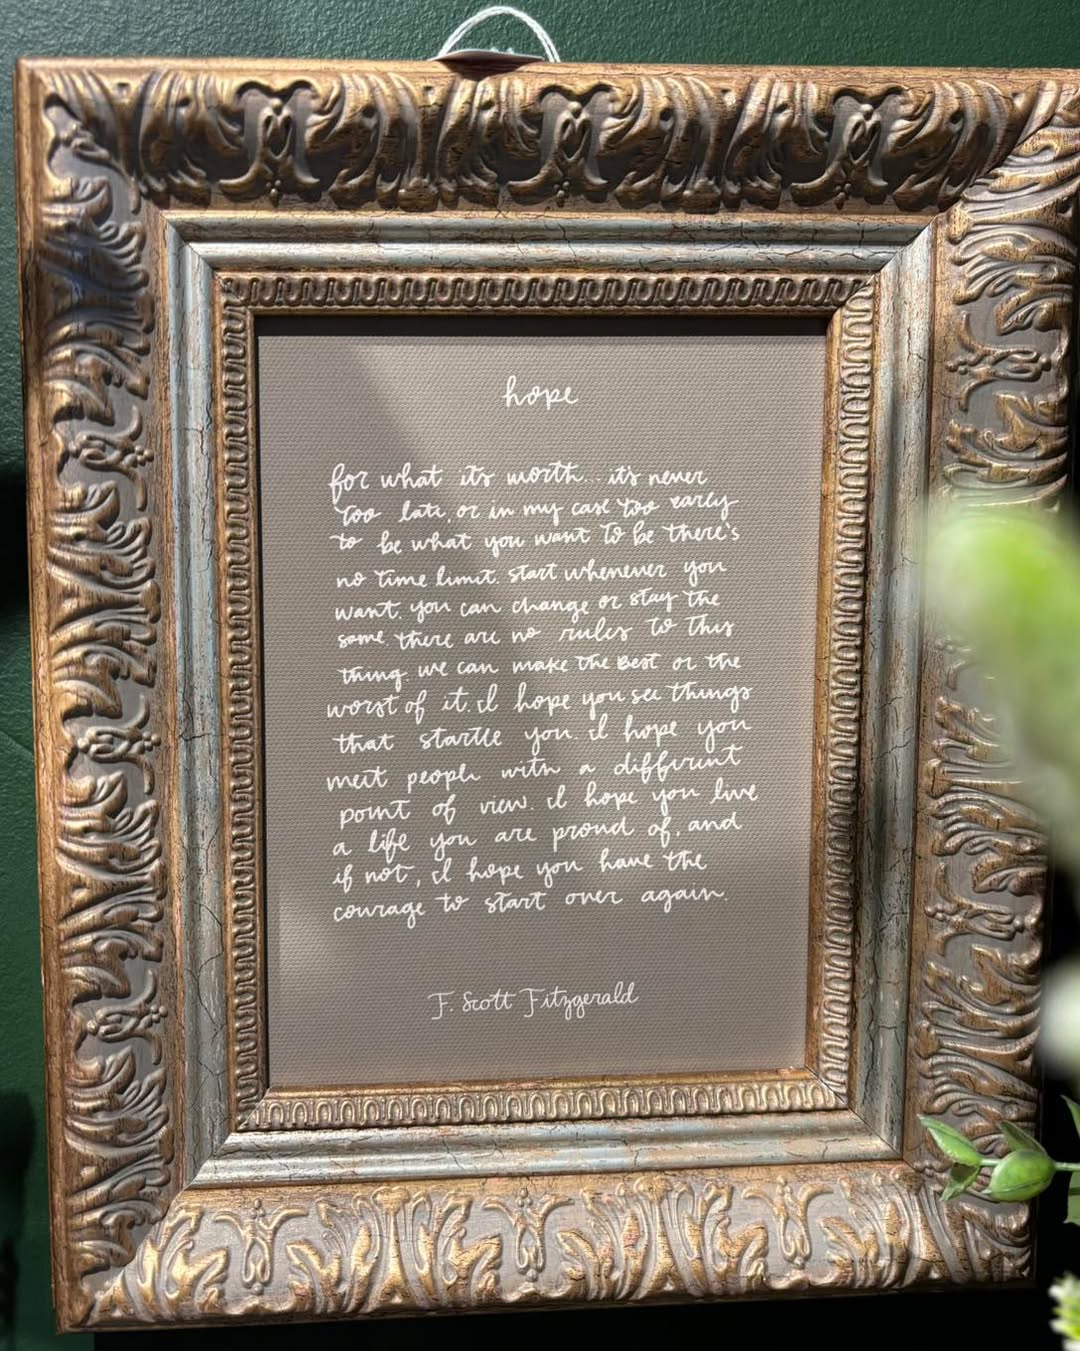 hope
for what its worth... it's never
too late, or in my case too early
to be what you want to be there's
no time limit. start whenever you
want. you can change or stay the
same there are no rules to this
thing. we can make the best or the
worst of it. I hope you see things
that startle you. I hope you
meet people with a different
point of view. I hope you live
a life you are proud of, and
if not, I hope you have the
courage to start over again.
F. Scott Fitzgerald